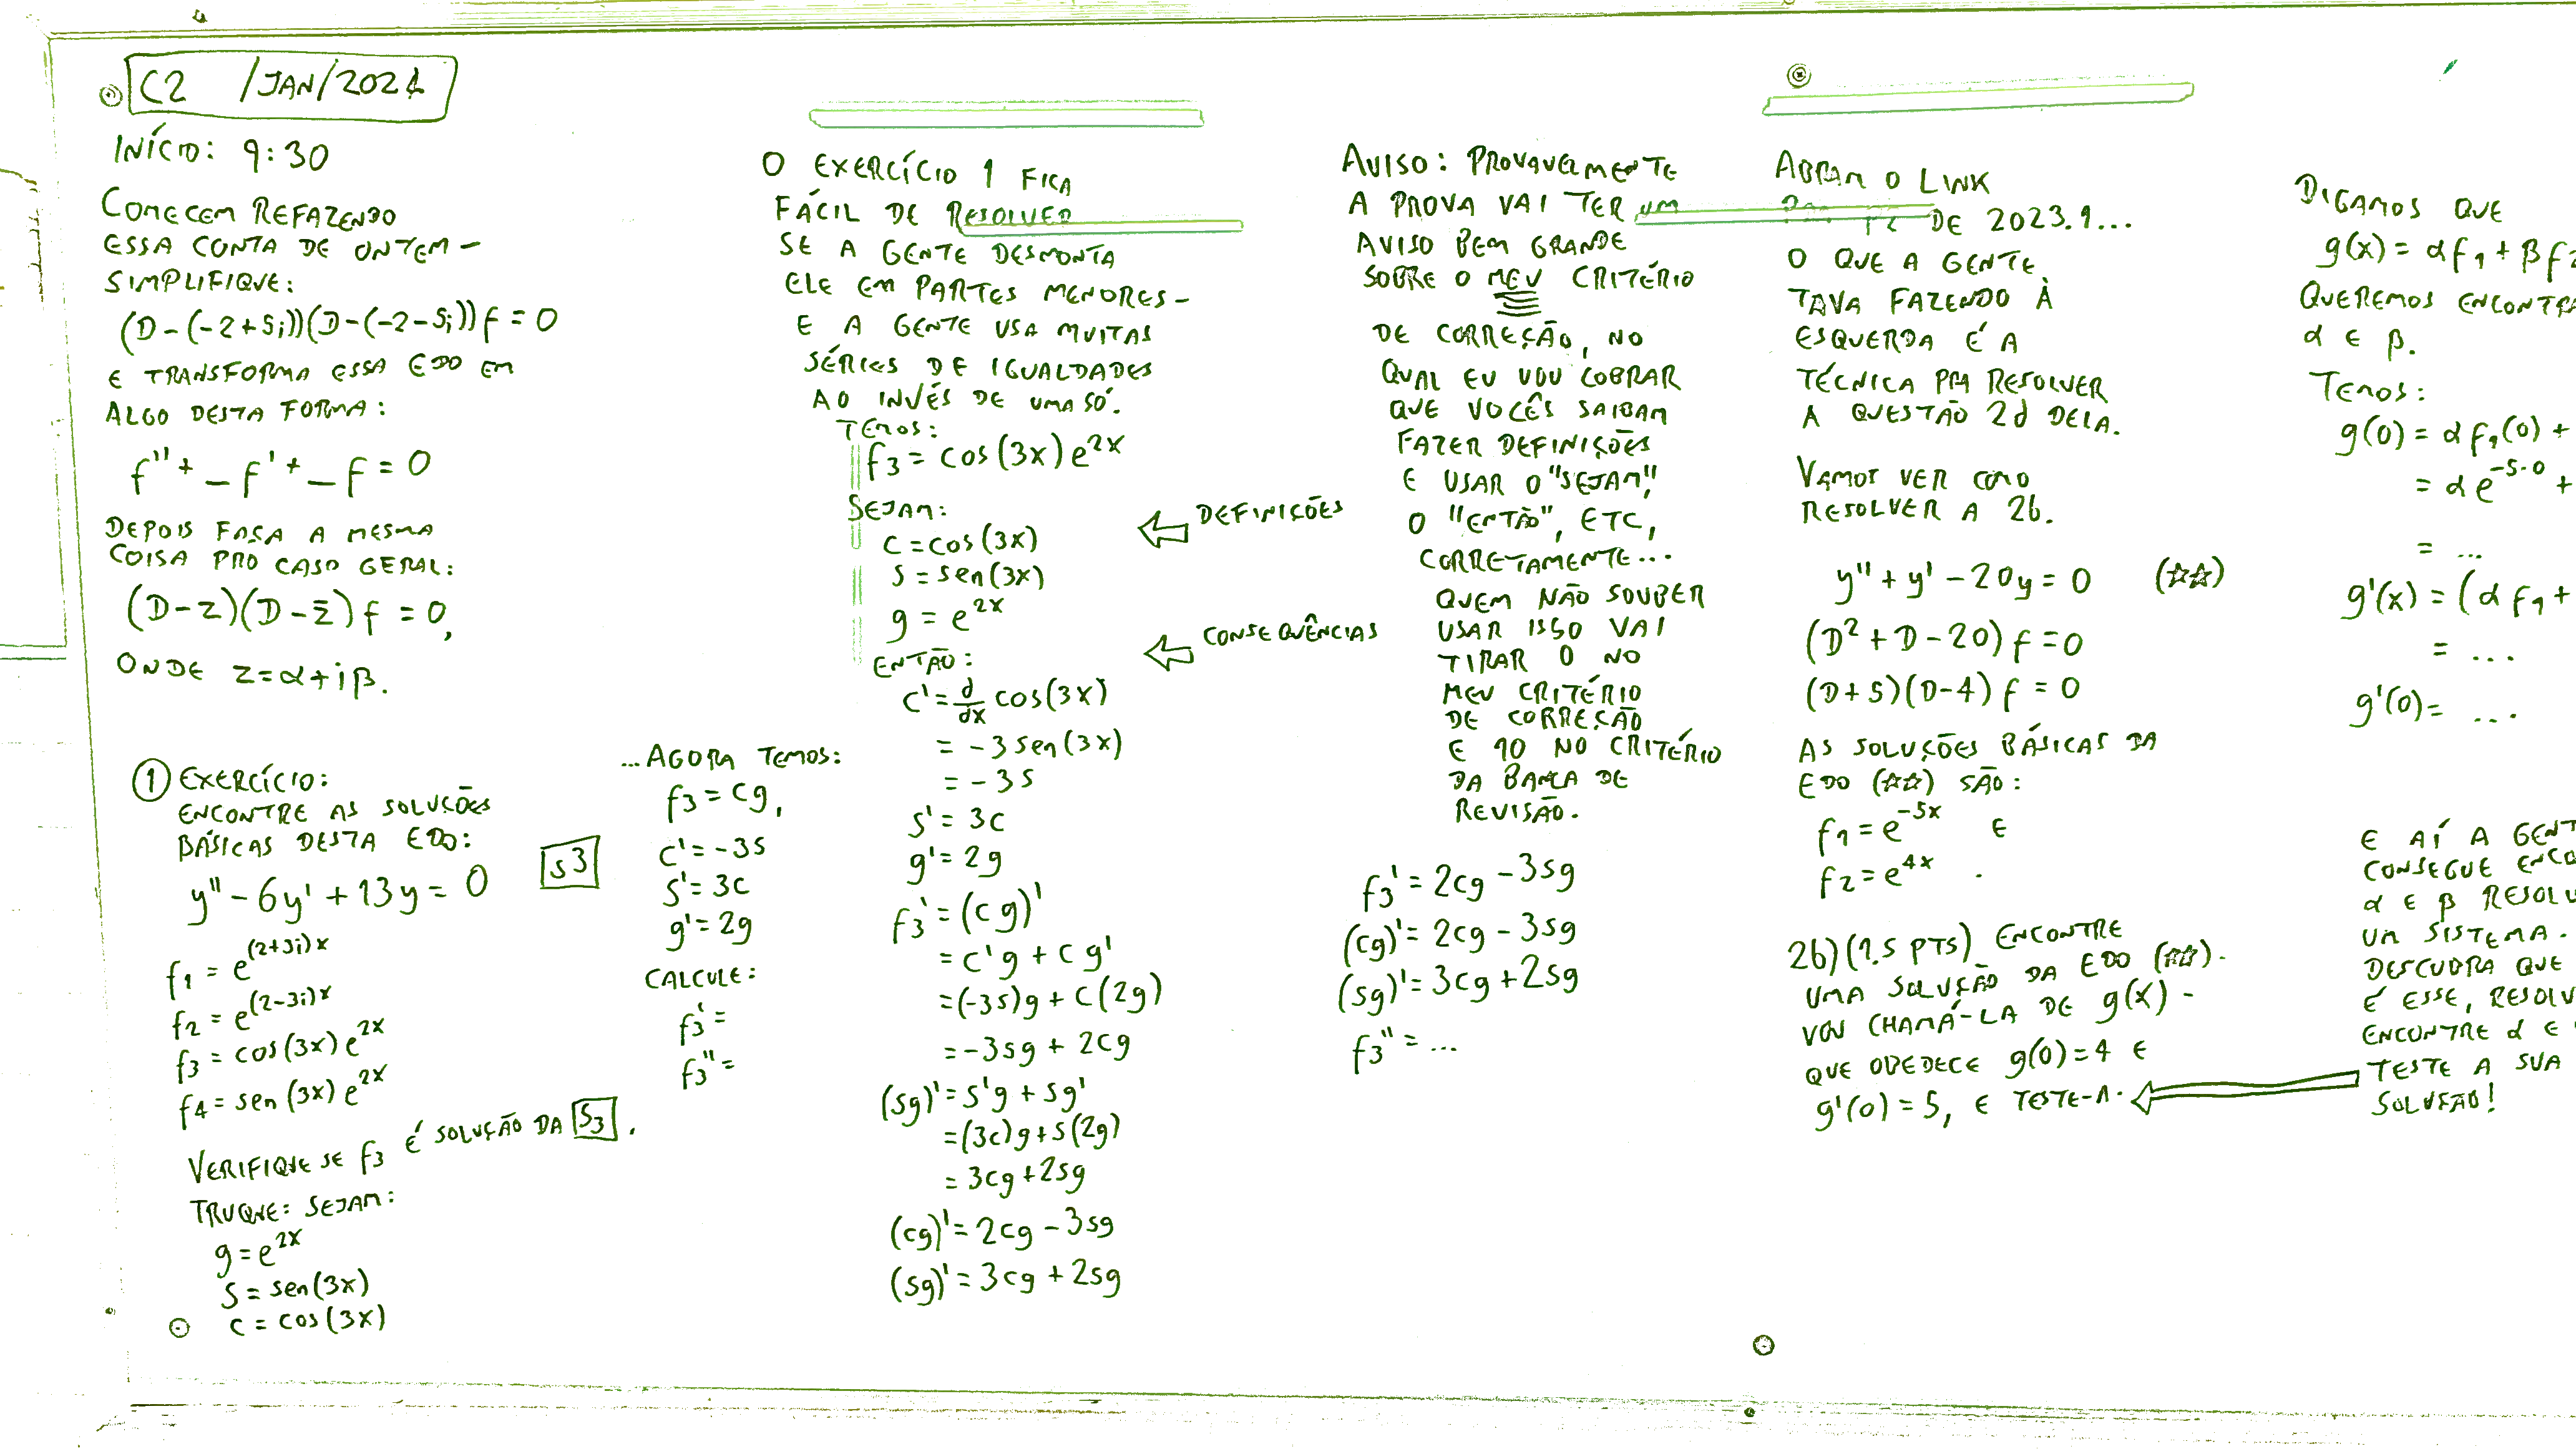 C2 /JAN/2024
INÍCIO: 9:30
COMECEM REFAZENDO
ESSA CONTA DE ONTEM –
SIMPLIFIQUE:
(D-(-2+5i))(D-(-2-5i))f = 0
E TRANSFORMA ESSA EDO EM
ALGO DESTA FORMA:
f'' + _ f' + _ f = 0
DEPOIS FAÇA A MESMA
COISA PRO CASO GERAL:
(D-z)(D-z̄)f = 0,
ONDE z=α+iβ.
① EXERCÍCIO:
ENCONTRE AS SOLUÇÕES
BÁSICAS DESTA EDO:
y'' - 6y' + 13y = 0 [S3]
f₁ = e^{(2+3i)x}
f₂ = e^{(2-3i)x}
f₃ = cos(3x) e^{2x}
f₄ = sen(3x) e^{2x}
VERIFIQUE SE f₃ É SOLUÇÃO DA [S3].
TRUQUE: SEJAM:
g = e^{2x}
S = sen(3x)
C = cos(3x)
...AGORA TEMOS:
f₃ = cg,
c' = -3s
s' = 3c
g' = 2g
CALCULE:
f₃' =
f₃'' =
O EXERCÍCIO 1 FICA
FÁCIL DE RESOLVER
SE A GENTE DESMONTA
ELE EM PARTES MENORES –
E A GENTE USA MUITAS
SÉRIES DE IGUALDADES
AO INVÉS DE UMA SÓ.
TEMOS:
f₃ = cos(3x) e^{2x}
SEJAM:
C = cos(3x)
S = sen(3x)
g = e^{2x}
⇐ DEFINIÇÕES
ENTÃO:
⇐ CONSEQUÊNCIAS
c' = d/dx cos(3x)
= -3 sen(3x)
= -3s
s' = 3c
g' = 2g
f₃' = (cg)'
= c'g + cg'
= (-3s)g + c(2g)
= -3sg + 2cg
(sg)' = s'g + sg'
= (3c)g + s(2g)
= 3cg + 2sg
(cg)' = 2cg - 3sg
(sg)' = 3cg + 2sg
AVISO: PROVAVELMENTE
A PROVA VAI TER UM
AVISO BEM GRANDE
SOBRE O MEU CRITÉRIO
DE CORREÇÃO, NO
QUAL EU VOU COBRAR
QUE VOCÊS SAIBAM
FAZER DEFINIÇÕES
E USAR O "SEJAM",
O "ENTÃO", ETC,
CORRETAMENTE...
QUEM NÃO SOUBER
USAR ISSO VAI
TIRAR 0 NO
MEU CRITÉRIO
DE CORREÇÃO
E 10 NO CRITÉRIO
DA BANCA DE
REVISÃO.
f₃' = 2cg - 3sg
(cg)' = 2cg - 3sg
(sg)' = 3cg + 2sg
f₃'' = ...
ABRAM O LINK
DE 2023.1...
O QUE A GENTE
TAVA FAZENDO À
ESQUERDA É A
TÉCNICA PRA RESOLVER
A QUESTÃO 2d DELA.
VAMOS VER COMO
RESOLVER A 2b.
y'' + y' - 20y = 0 (☆☆)
(D² + D - 20) f = 0
(D+5)(D-4) f = 0
AS SOLUÇÕES BÁSICAS DA
EDO (☆☆) SÃO:
f₁ = e^{-5x} E
f₂ = e^{4x} .
2b) (1.5 PTS) ENCONTRE
UMA SOLUÇÃO DA EDO (☆☆) -
VOU CHAMÁ-LA DE g(x) -
QUE OBEDECE g(0) = 4 E
g'(0) = 5, E TESTE-A.
DIGAMOS QUE
g(x) = αf₁ + βf₂
QUEREMOS ENCONTRA
α E β.
TEMOS:
g(0) = αf₁(0) +
= αe^{-5·0} +
= ...
g'(x) = (αf₁ +
= ...
g'(0) = ...
E AÍ A GENT
CONSEGUE ENCO
α E β RESOLV
UM SISTEMA.
DESCUBRA QUE
É ESSE, RESOLV
ENCONTRE α E
TESTE A SUA
SOLUÇÃO!